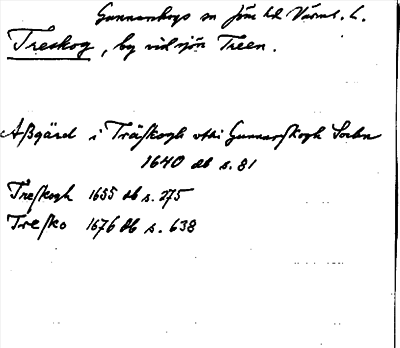 Gunnarskogs sn Jöse hd Värml. l.
Treskog, by vid sjön Treen.
Aßgärd i Träskogh uthi Gunnarskogh Sochn
1640 db s. 81
Treskogh 1655 db s. 275
Tresko 1676 db s. 638